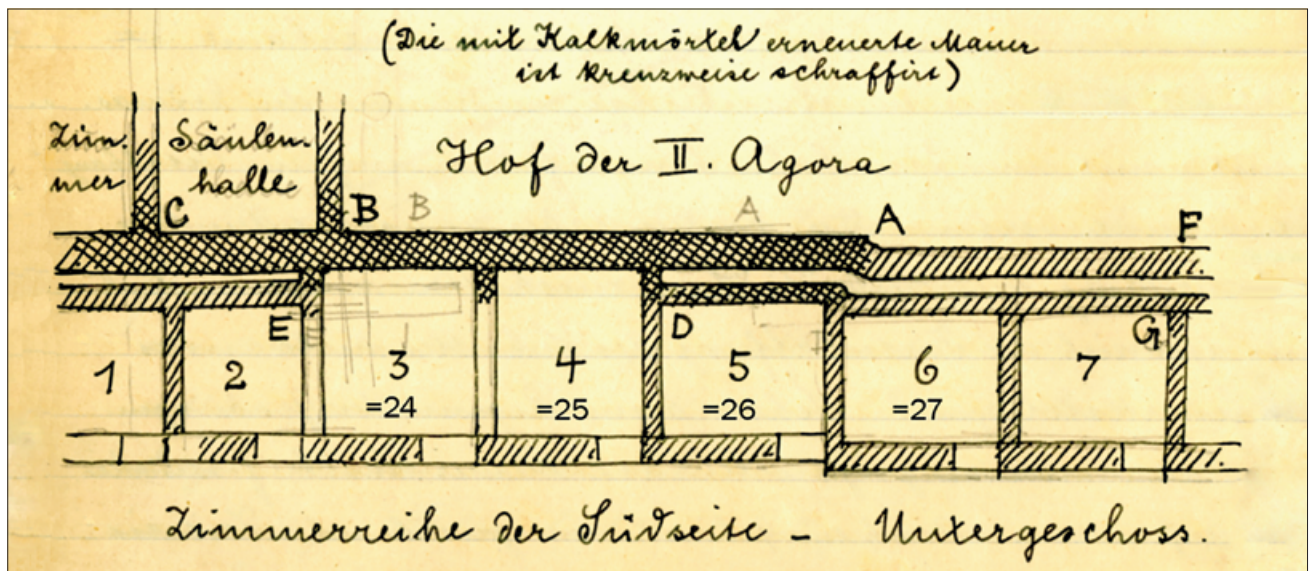 (Die mit Kalkmörtel erneuerte Mauer
ist kreuzweise schraffirt)
Zim-
mer
Säulen-
halle
Hof der II. Agora
C
B
B
A
A
F
E
D
G
1
2
3
4
5
6
7
=24
=25
=26
=27
Zimmerreihe der Südseite – Untergeschoss.